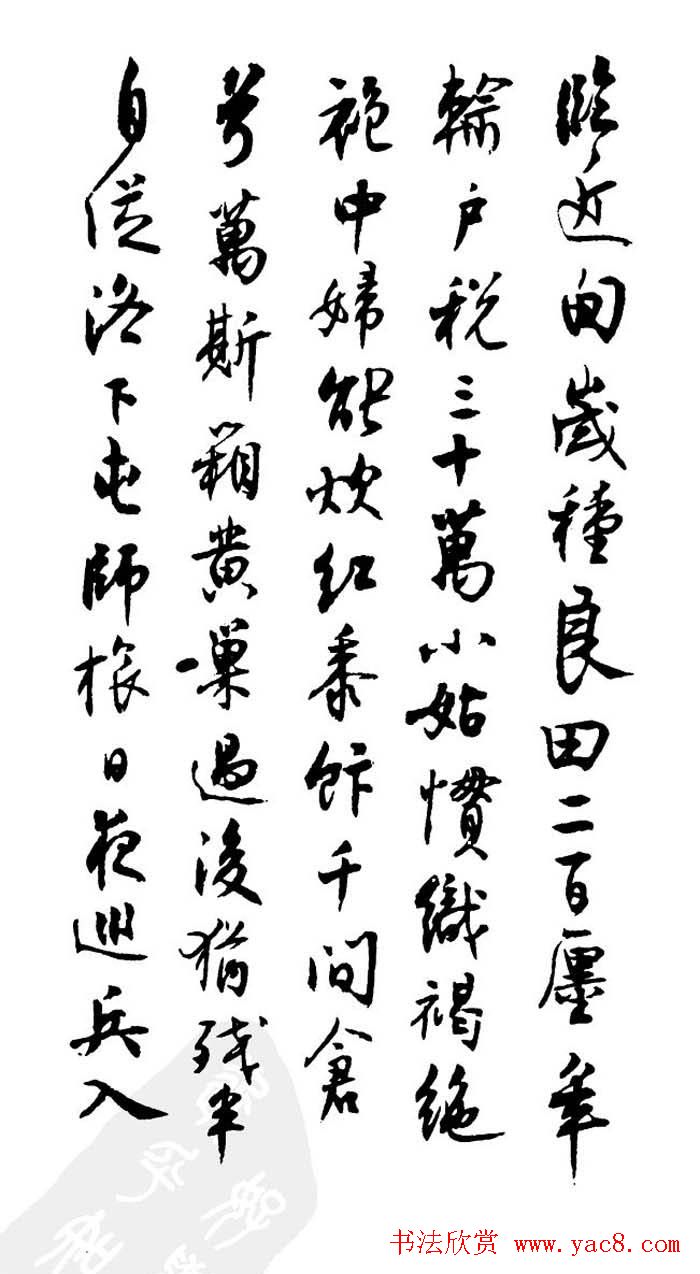 臨近甸歲種良田二百廛年
輸户税三十萬小姑慣織褐絁
袍中婦能炊紅黍飰千間倉
兮萬斯箱黄巢過後猶残半
自從洛下屯師旅日夜巡兵入
书法欣赏 www.yac8.com